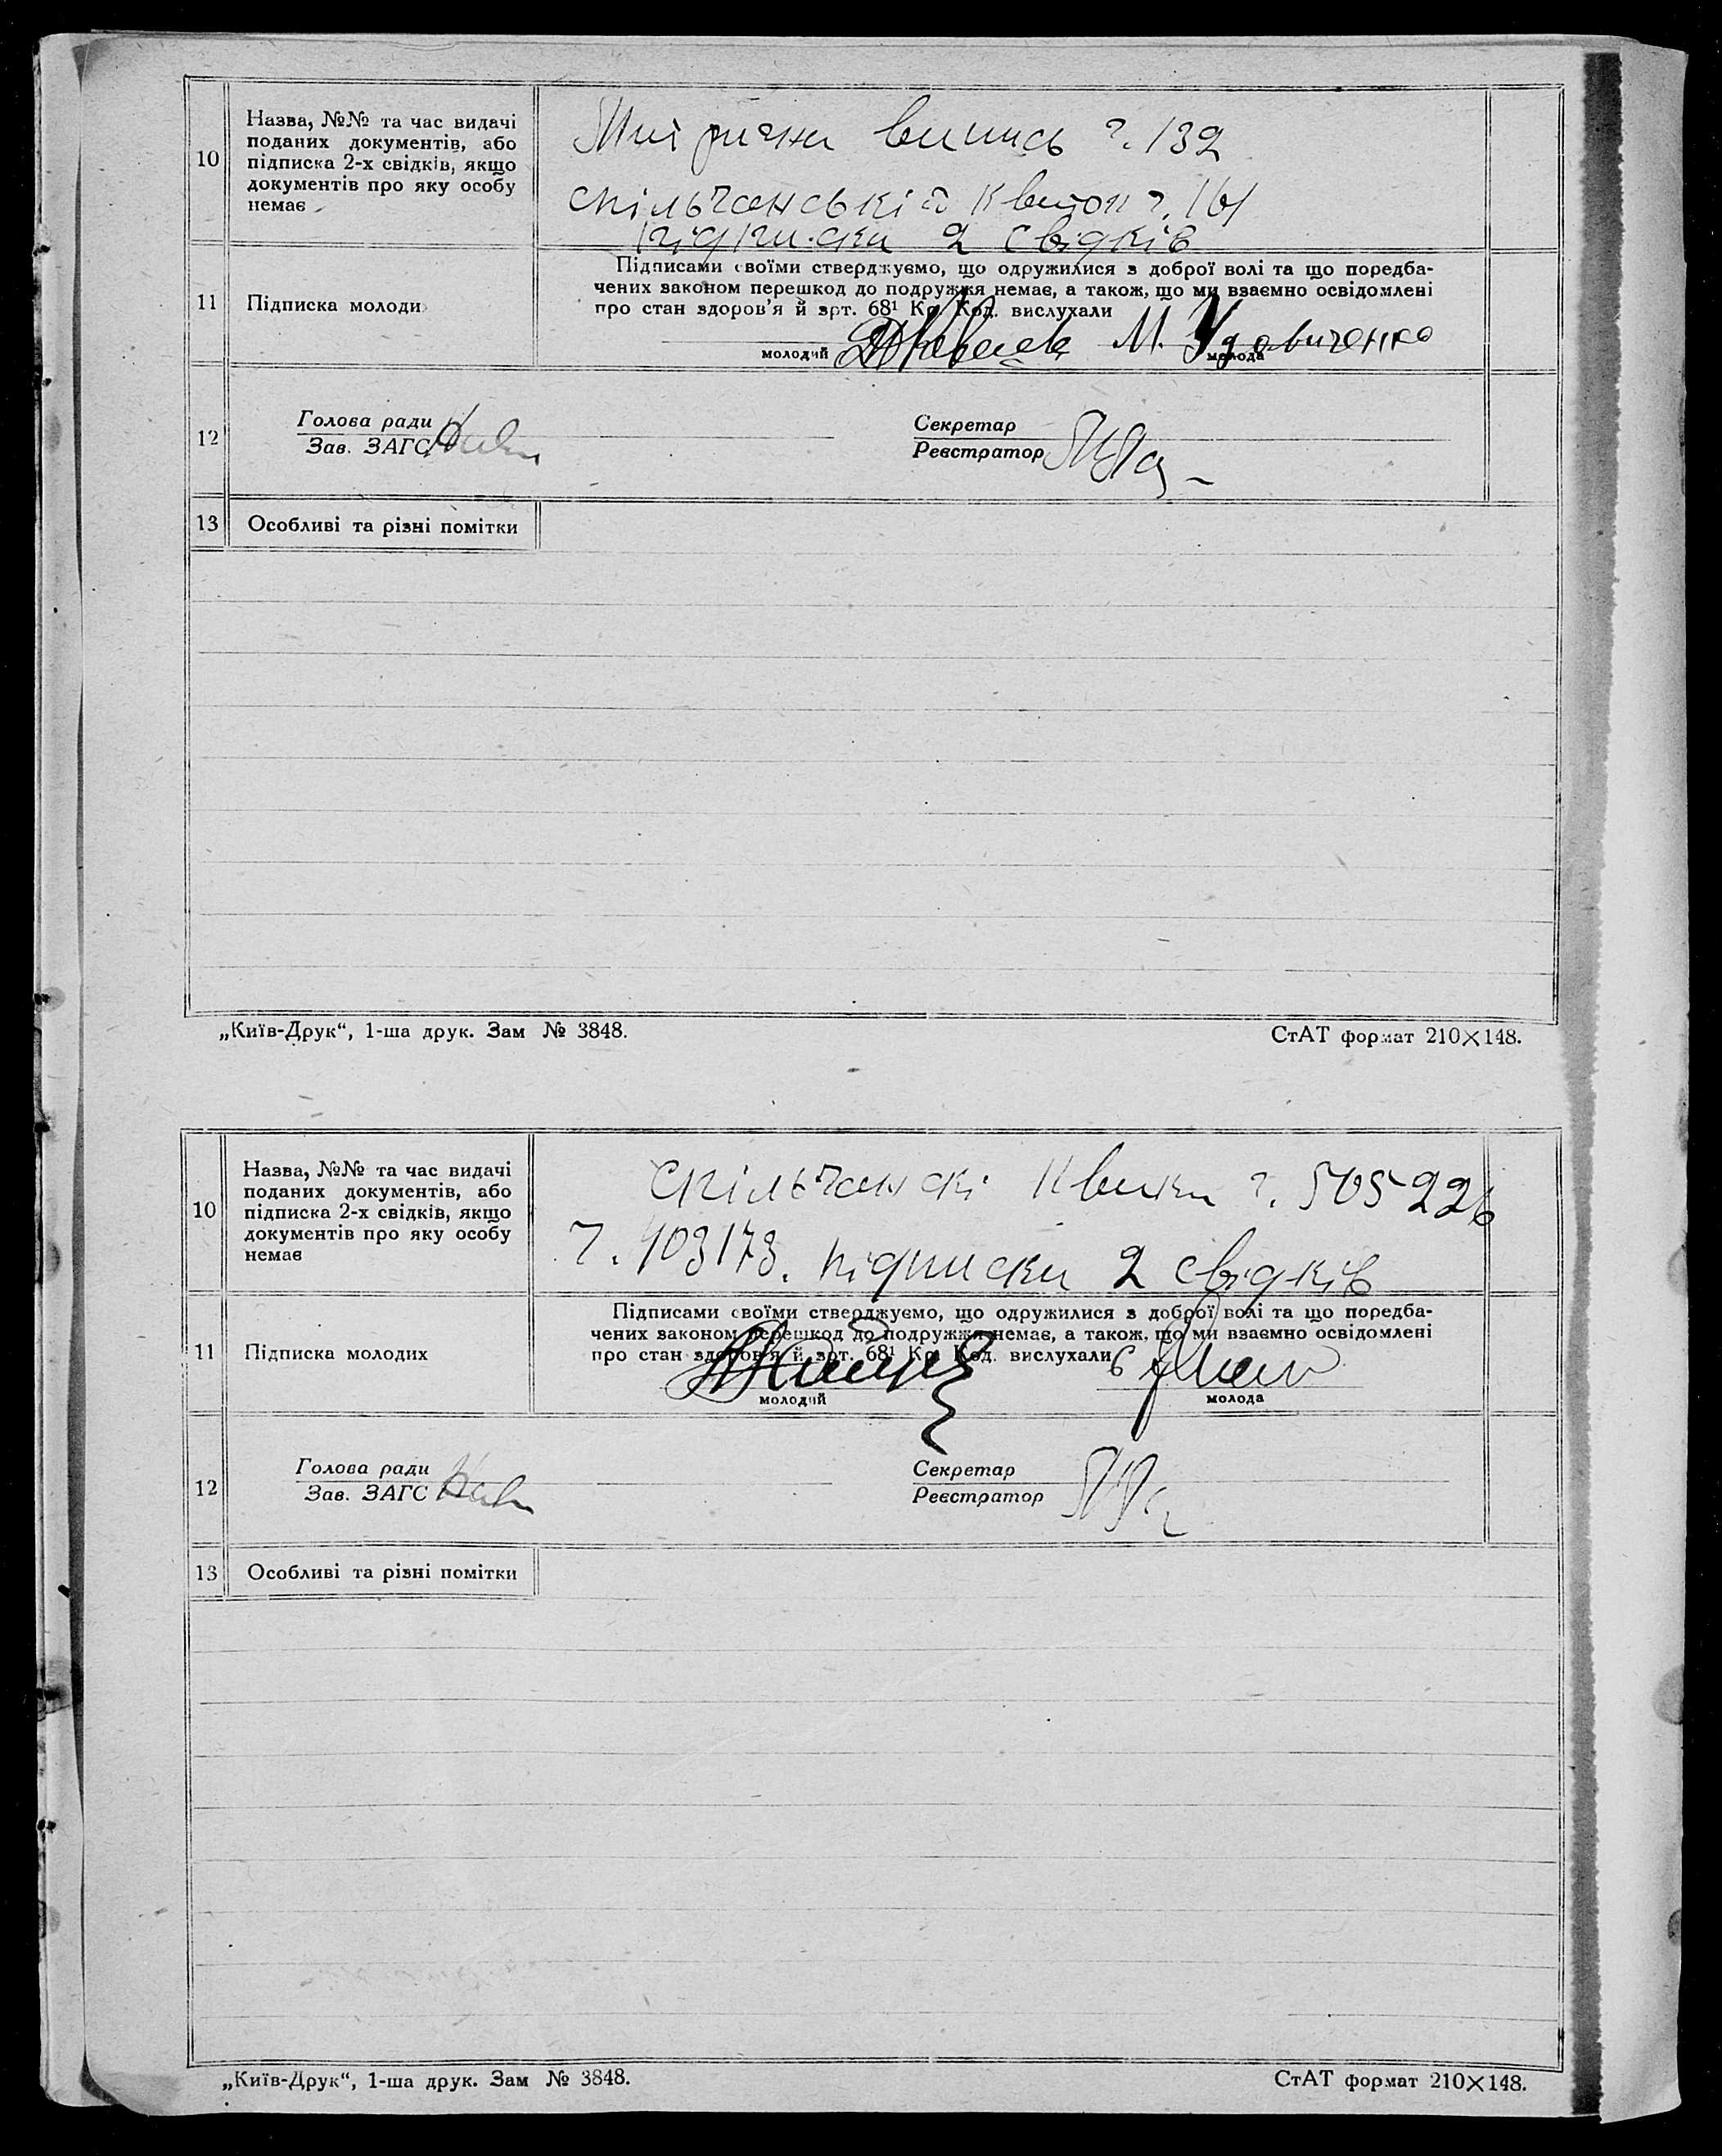 10
Назва, №№ та час видачі
поданих документів, або
підписка 2-х свідків, якщо
документів про яку особу
немає
Митрична випись ч. 132
спільчанській квиток ч. 161
підписки 2 свідків
11
Підписка молоди
Підписами своїми стверджуємо, що одружилися з доброї волі та що поредба-
чених законом перешкод до подружжя немає, а також, що ми взаємно освідомлені
про стан здоров'я й арт. 68¹ Кр. Код. вислухали
М. Удовиченко
молодий
молода
12
Голова ради
Зав. ЗАГС
Секретар
Реєстратор
13
Особливі та різні помітки
„Київ-Друк“, 1-ша друк. Зам № 3848.
СтАТ формат 210×148.
10
Назва, №№ та час видачі
поданих документів, або
підписка 2-х свідків, якщо
документів про яку особу
немає
Спільчанскі квитки ч. 505226
ч. 403173. підписки 2 свідків
11
Підписка молодих
Підписами своїми стверджуємо, що одружилися з доброї волі та що поредба-
чених законом перешкод до подружжя немає, а також, що ми взаємно освідомлені
про стан здоров'я й арт. 68¹ Кр. Код. вислухали
молодий
молода
12
Голова ради
Зав. ЗАГС
Секретар
Реєстратор
13
Особливі та різні помітки
„Київ-Друк“, 1-ша друк. Зам № 3848.
СтАТ формат 210×148.